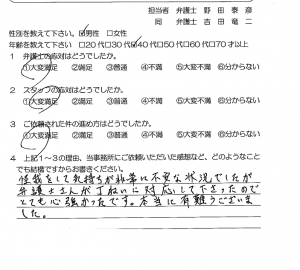 担当者 弁護士 野田泰彦
同 弁護士 吉田竜二
性別を教えて下さい。 ☑男性 □女性
年齢を教えて下さい □20代□30代☑40代□50代□60代□70才以上
1 弁護士の応対はどうでしたか。
①大変満足 ②満足 ③普通 ④不満 ⑤大変不満 ⑥分からない
2 スタッフの応対はどうでしたか。
①大変満足 ②満足 ③普通 ④不満 ⑤大変不満 ⑥分からない
3 ご依頼された件の進め方はどうでしたか。
①大変満足 ②満足 ③普通 ④不満 ⑤大変不満 ⑥分からない
4 上記1~3の理由、当事務所にご依頼いただいた感想など、どのようなこと
でも結構ですからお書きください。
怪我をして気持ちが非常に不安な状況でしたが
弁護士さんが丁ねいに対応して下さったので
とても心強かったです。本当に有難うございま
した。